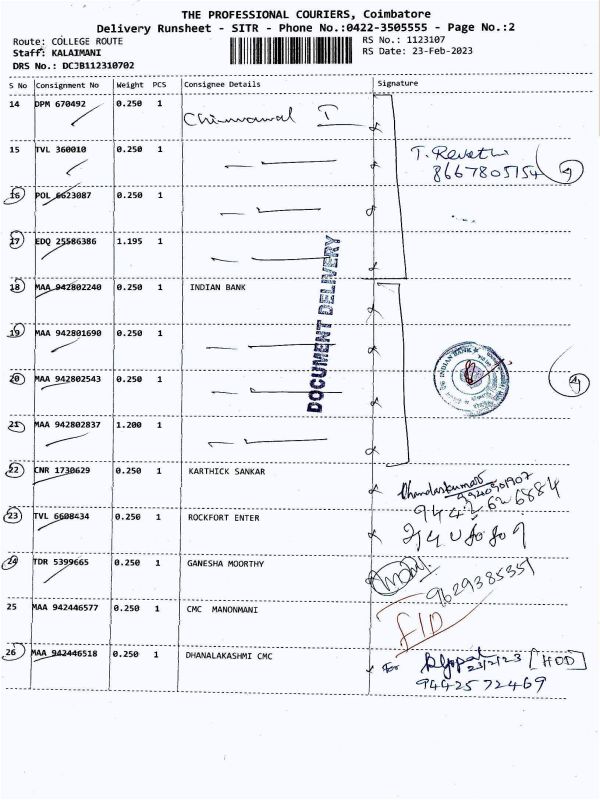 THE PROFESSIONAL COURIERS, Coimbatore
Delivery Runsheet - SITR - Phone No.:0422-3505555 - Page No.:2
Route: COLLEGE ROUTE RS No.: 1123107
Staff: KALAIMANI RS Date: 23-Feb-2023
DRS No.: DCJB112310702
S No Consignment No Weight PCS Consignee Details Signature
14 DPM 670492 0.250 1
15 TVL 360010 0.250 1 T. Revathi
8667805154
16 POL 6623087 0.250 1
17 EDQ 25586386 1.195 1
18 MAA 942802240 0.250 1 INDIAN BANK
19 MAA 942801690 0.250 1
20 MAA 942802543 0.250 1
21 MAA 942802837 1.200 1
DOCUMENT DELIVERY
INDIAN BANK
22 CNR 1730629 0.250 1 KARTHICK SANKAR
23 TVL 6608434 0.250 1 ROCKFORT ENTER
24 TDR 5399665 0.250 1 GANESHA MOORTHY
9629385351
25 MAA 942446577 0.250 1 CMC MANONMANI
26 MAA 942446518 0.250 1 DHANALAKASHMI CMC For
23/2/23 [HOD]
9442572469